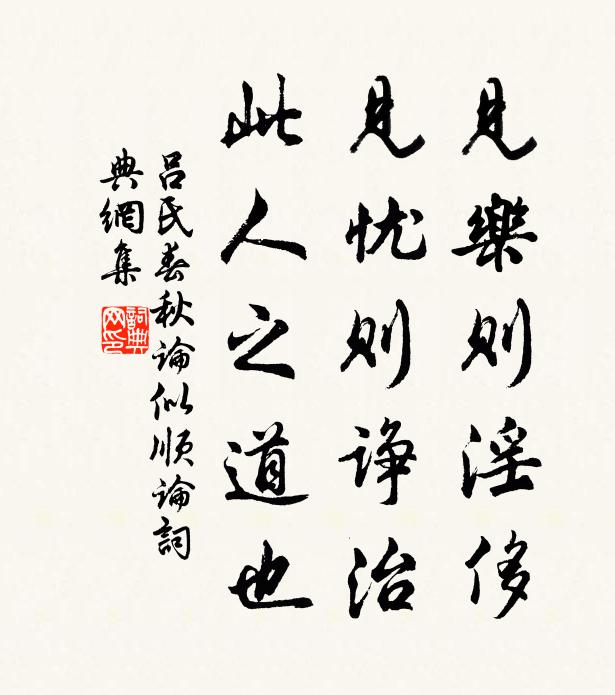 見樂則淫侈
見忧則諍治
此人之道也
吕氏春秋論似順論詞
典網集
詞典网印